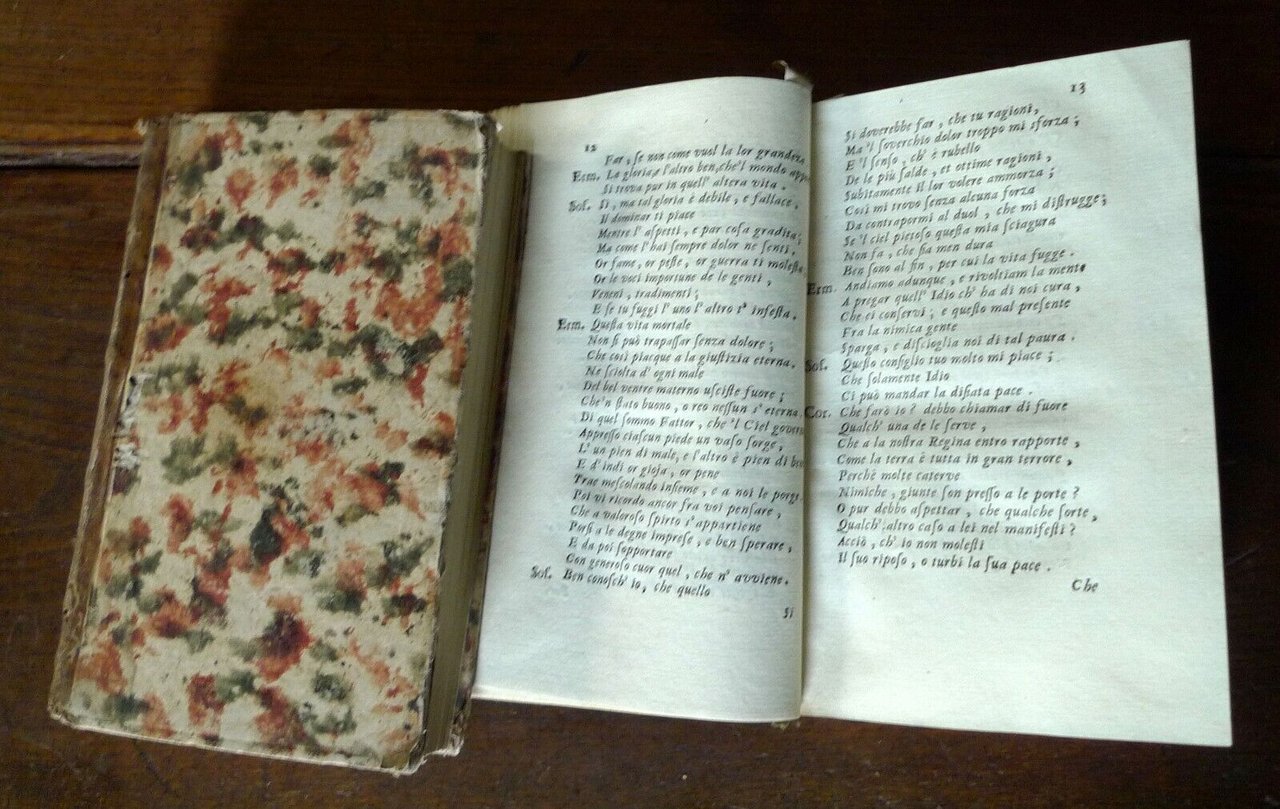 12
Far, ſe non come vuol la lor grandezza
Erm. La gloria, e l'altro ben, che'l mondo
Si trova pur in quell' altera vita.
Soſ. Sì, ma tal gloria è debile, e fallace,
Il dominar ti piace
Mentre l' aſpetti, e par coſa gradita;
Ma come l' hai ſempre dolor ne ſenti.
Or fame, or peſte, or guerra ti moleſta
Or le voci importune de le genti,
Veneni, tradimenti;
E ſe tu fuggi l' uno l' altro t' infeſta.
Erm. Queſta vita mortale
Non ſi può trapaſſar ſenza dolore;
Che così piacque a la giuſtizia eterna.
Ne ſciolta d' ogni male
Del bel ventre materno uſciſte fuore;
Che'n ſtato buono, o reo neſſun s' eterna.
Di quel ſommo Fattor, che 'l Ciel
Appreſſo ciaſcun piede un vaſo ſorge,
L' un pien di male, e l'altro è pien di
E d' indi or gioja, or pene
Trae meſcolando inſieme, e a noi le porge
Poi vi ricordo ancor fra voi penſare,
Che a valoroſo ſpirto s' appartiene
Porſi a le degne impreſe, e ben ſperare,
E da poi ſopportare
Con generoſo cuor quel, che n' avviene.
Soſ. Ben conoſch' io, che quello
Si
13
Si doverebbe far, che tu ragioni,
Ma 'l ſoverchio dolor troppo mi sforza;
E 'l ſenſo, ch' è rubello
De le più ſalde, et ottime ragioni,
Subitamente il lor volere ammorza;
Così mi trovo ſenza alcuna forza
Da contrapormi al duol, che mi diſtrugge;
Se 'l ciel pietoſo queſta mia ſciagura
Non fa, che ſia men dura
Ben ſono al fin, per cui la vita fugge.
Erm. Andiamo adunque, e rivoltiam la mente
A pregar quell' Idio ch' ha di noi cura,
Che ci conſervi; e queſto mal preſente
Fra la nimica gente
Sparga, e diſcioglia noi di tal paura.
Soſ. Queſto conſiglio tuo molto mi piace;
Che ſolamente Idio
Ci può mandar la diſiata pace.
Cor. Che farò io? debbo chiamar di fuore
Qualch' una de le ſerve,
Che a la noſtra Regina entro rapporte,
Come la terra è tutta in gran terrore,
Perchè molte caterve
Nimiche, giunte ſon preſſo a le porte?
O pur debbo aſpettar, che qualche ſorte,
Qualch' altro caſo a lei nel manifeſti?
Acciò, ch' io non moleſti
Il ſuo ripoſo, o turbi la ſua pace.
Che